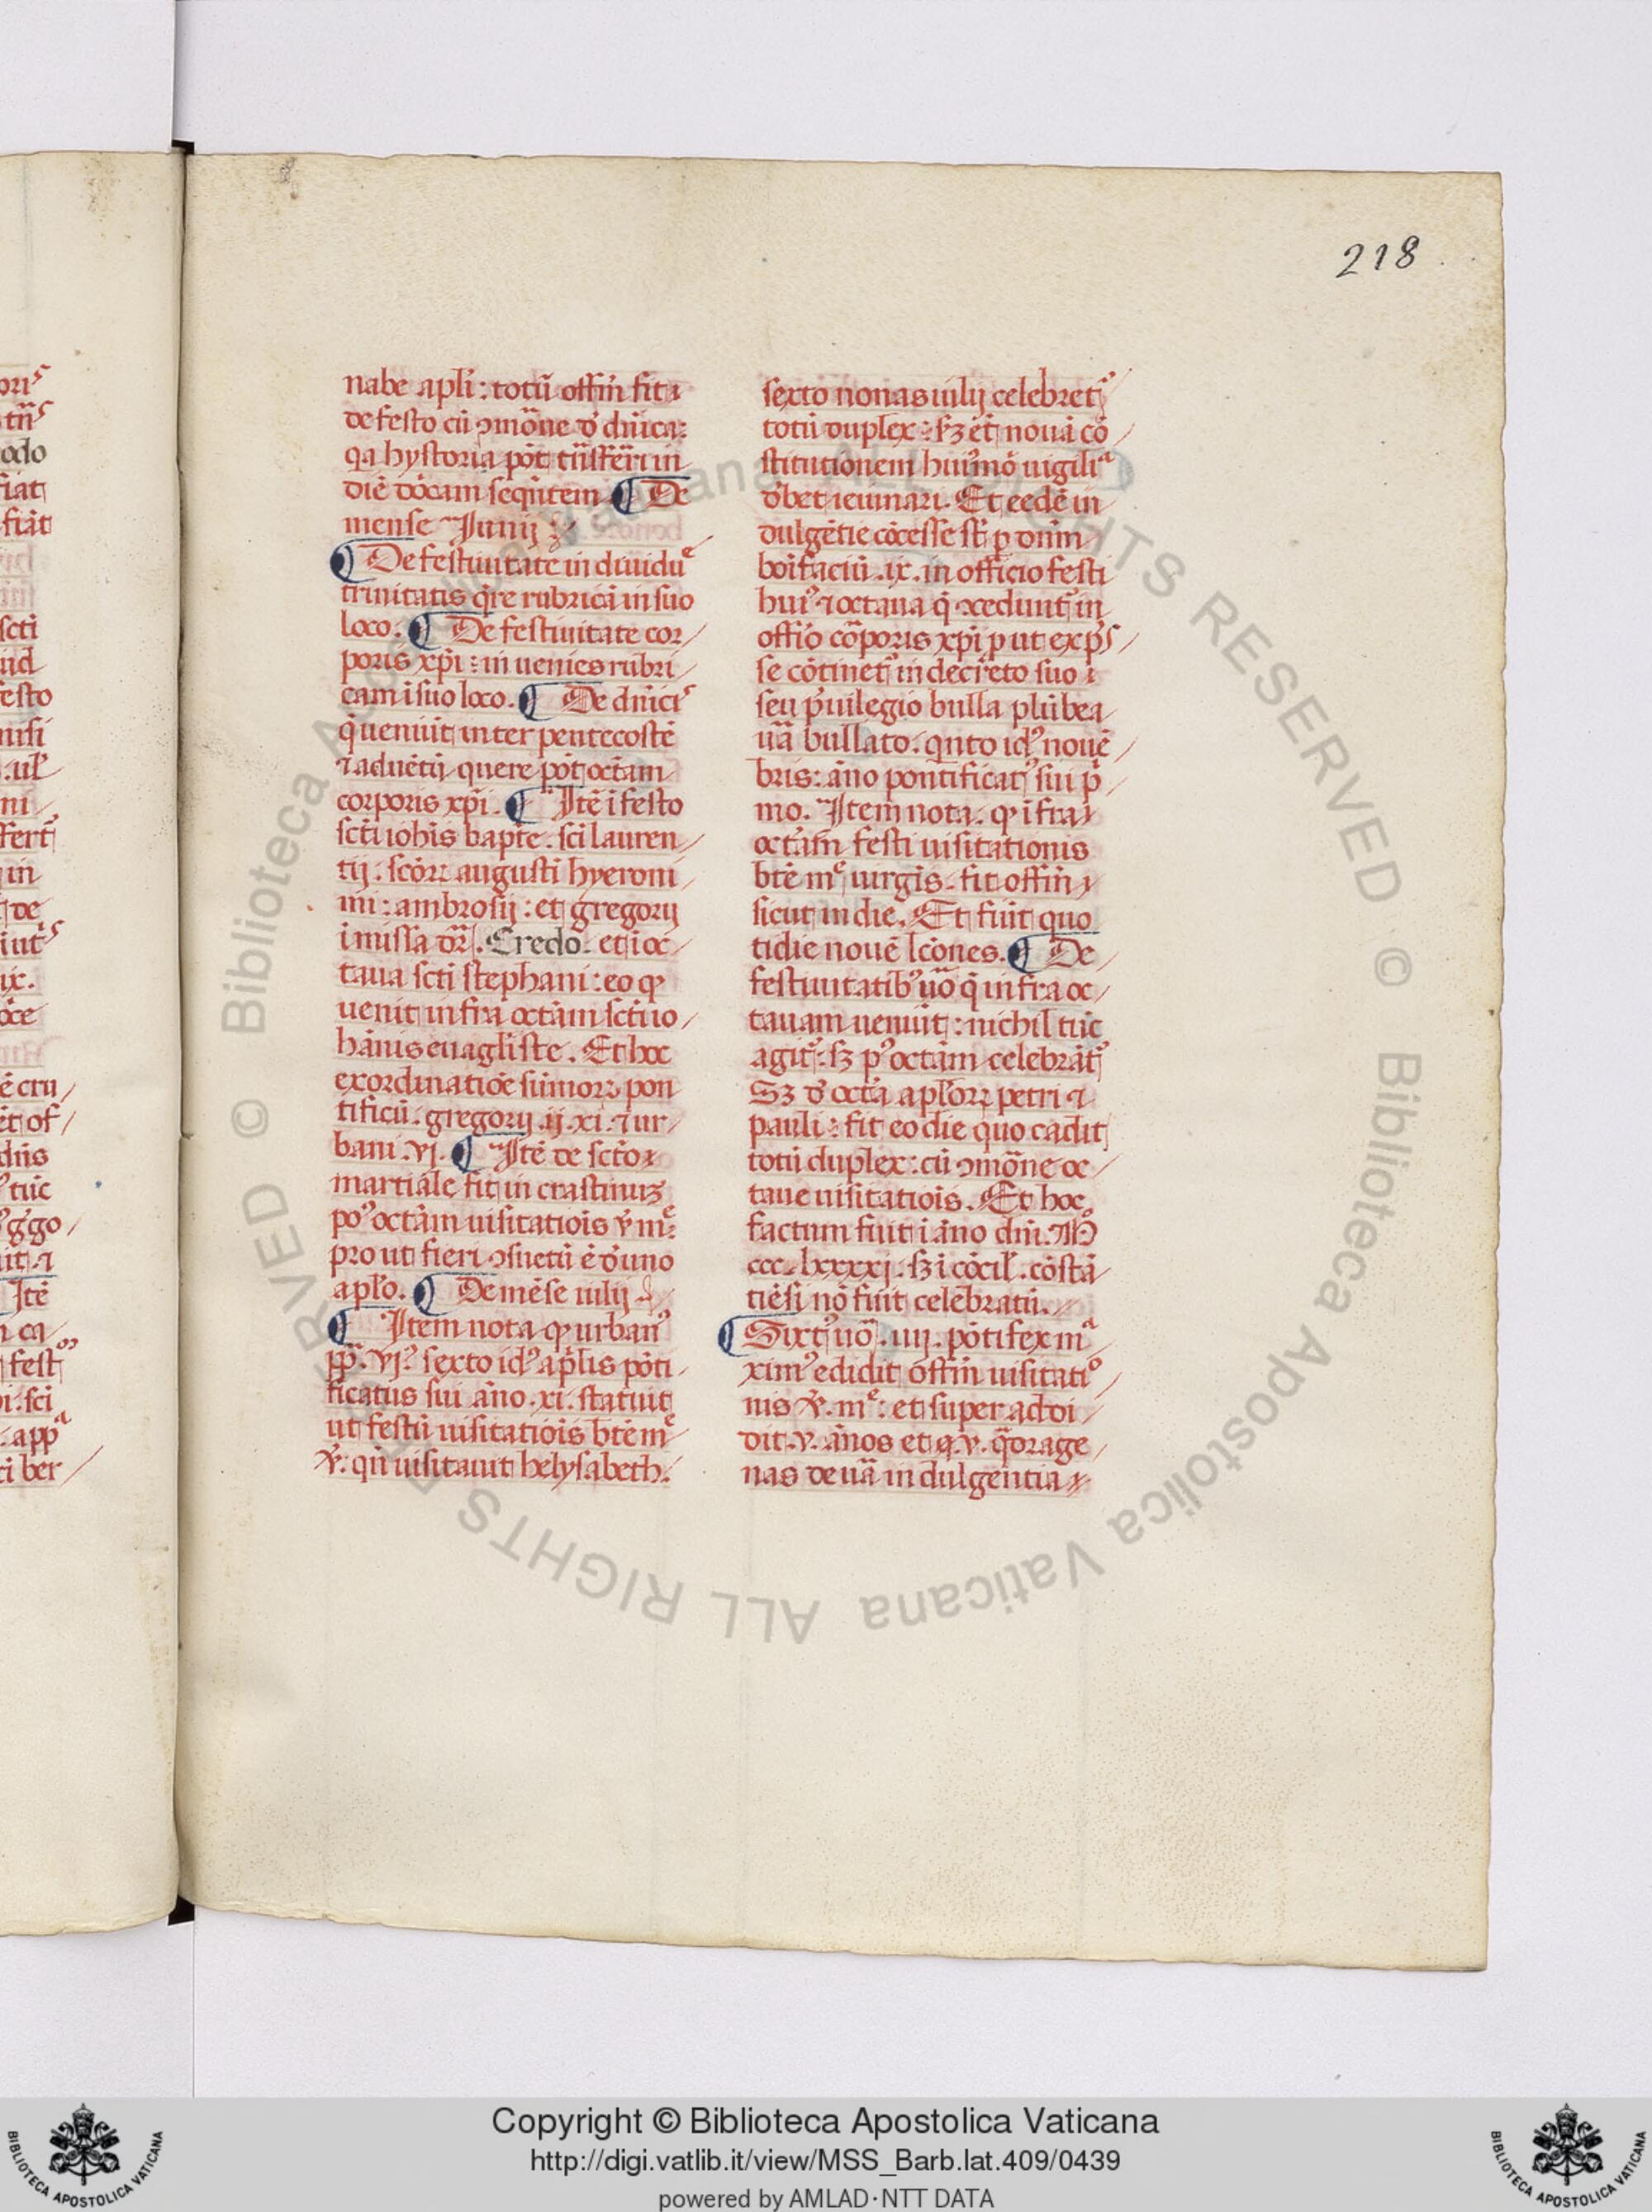 218
nabe apl̃i: totũ offm̃ fit
de festo cũ ɔmõne d̕ dñica:
qa hystoria põt trãsferri in
diẽ vocam seqñtem ¶ De
mense Junij
¶ De festiuitate indiuidue
trinitatis q̃re rubricã in suo
loco. ¶ De festiuitate cor/
poris xp̃i: inuenies rubri/
cam ĩ suo loco. ¶ De dñicis
q̃ ueniũt inter pentecostẽ
⁊ aduẽtũ quere põt octam̃
corporis xp̃i. ¶ Itẽ ĩ festo
scti iohis bapte. sci lauren/
tij. scoꝝ augusti hyeroni/
mi: ambrosij: et gregorij
ĩ missa dr̃. Credo. et ĩ oc/
taua scti stephani: eo ꝙ
uenit infra octam̃ scti io/
hãnis euãgliste. Et hoc
ex ordinatiõe sũmoꝝ pon
tificũ. gregorij .ij. xi. ⁊ ur/
bani .vj. ¶ Itẽ de scto
martiale fit in crastinuꝫ
poꝰ octam̃ uisitatiois v̕ mᵉ:
pro ut fieri ɔsuetũ ẽ d̕ uno
aplo. ¶ De mẽse iulij
¶ Item nota ꝙ urbanꝰ
pp̃. vjꝰ. sexto idꝰ ap̃lis põti/
ficatus sui ãno .xi. statuit
ut festũ uisitatiois btẽ mᵉ
v̕. qñ uisitauit helysabeth.
sexto nonas iulij celebretꝰ
totũ duplex: sꝫ et nouã cõ/
stitutionem huiꝰmõi uigilia
d̕bet ieiunari. Et eedẽ in
dulgẽtie cõcesse st̃ p dñm
boifaciũ .ix. in officio festi
huiꝰ ⁊ octaua q̃ ɔcedunt̃ in
offio cõrporis xp̃i p ut exp̃s/
se cõtinetꝰ in decreto suo
seu p̕uilegio bulla plũbea/
uã bullato. q̃nto idꝰ nouẽ/
bris: ãno pontificatꝰ sui p̃
mo. Item nota. ꝙ ĩfra
octam̃ festi uisitationis
btẽ mᵉ uirgĩs. fit offm̃
sicut in die. Et fuit quo
tidie nouẽ lcõnes. ¶ De/
festiuitatibꝰ uõ q̃ infra oc/
tauam ueniũt: nichil tũc
agitꝰ: sꝫ pꝰ octam̃ celebrãtꝰ
Sꝫ d̕ octã aploꝝ petri ⁊
pauli: fit eo die quo cadit
totũ duplex: cũ ɔmõne oc/
taue uisitatiois. Et hoc
factum fuit ĩ ãno dñi. Mᵒ
ccc. lxxxxj. sꝫ ĩ cõcil. cõstã/
tiẽsi nõ fuit celebratũ.
¶ Sixtꝰ uõ .iiij. põtifex mᵃ
ximꝰ edidit offm̃ uisitatiᵒ/
nis v̕. mᵉ: et super addi/
dit .v. ãnos et q̃. v. q̃drage/
nas de uã indulgentia
Copyright © Biblioteca Apostolica Vaticana
http://digi.vatlib.it/view/MSS_Barb.lat.409/0439
powered by AMLAD·NTT DATA
BIBLIOTECA APOSTOLICA VATICANA
BIBLIOTECA APOSTOLICA VATICANA
© Biblioteca Apostolica Vaticana ALL RIGHTS RESERVED
© Biblioteca Apostolica Vaticana ALL RIGHTS RESERVED